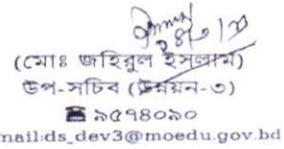 ২৪/৩/১৯
(মোঃ জহিরুল ইসলাম)
উপ-সচিব (উন্নয়ন-৩)
☎ ৯৫৭৪০৯০
mail:ds_dev3@moedu.gov.bd